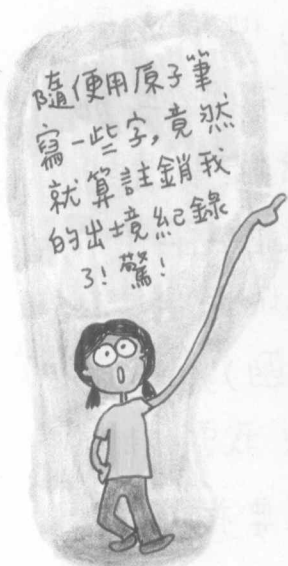 隨便用原子筆
寫一些字,竟然
就算註銷我
的出境紀錄
了!驚!